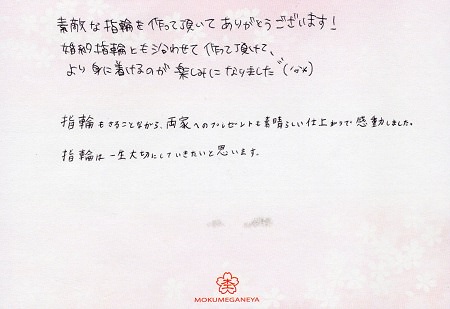 素敵な指輪を作って頂いてありがとうございます!
婚約指輪とも沿わせて作って頂けて、
より身に着けるのが楽しみになりました
指輪もさることながら、両家へのプレゼントも素晴らしい仕上がりで感動しました。
指輪は一生大切にしていきたいと思います。
MOKUMEGANEYA